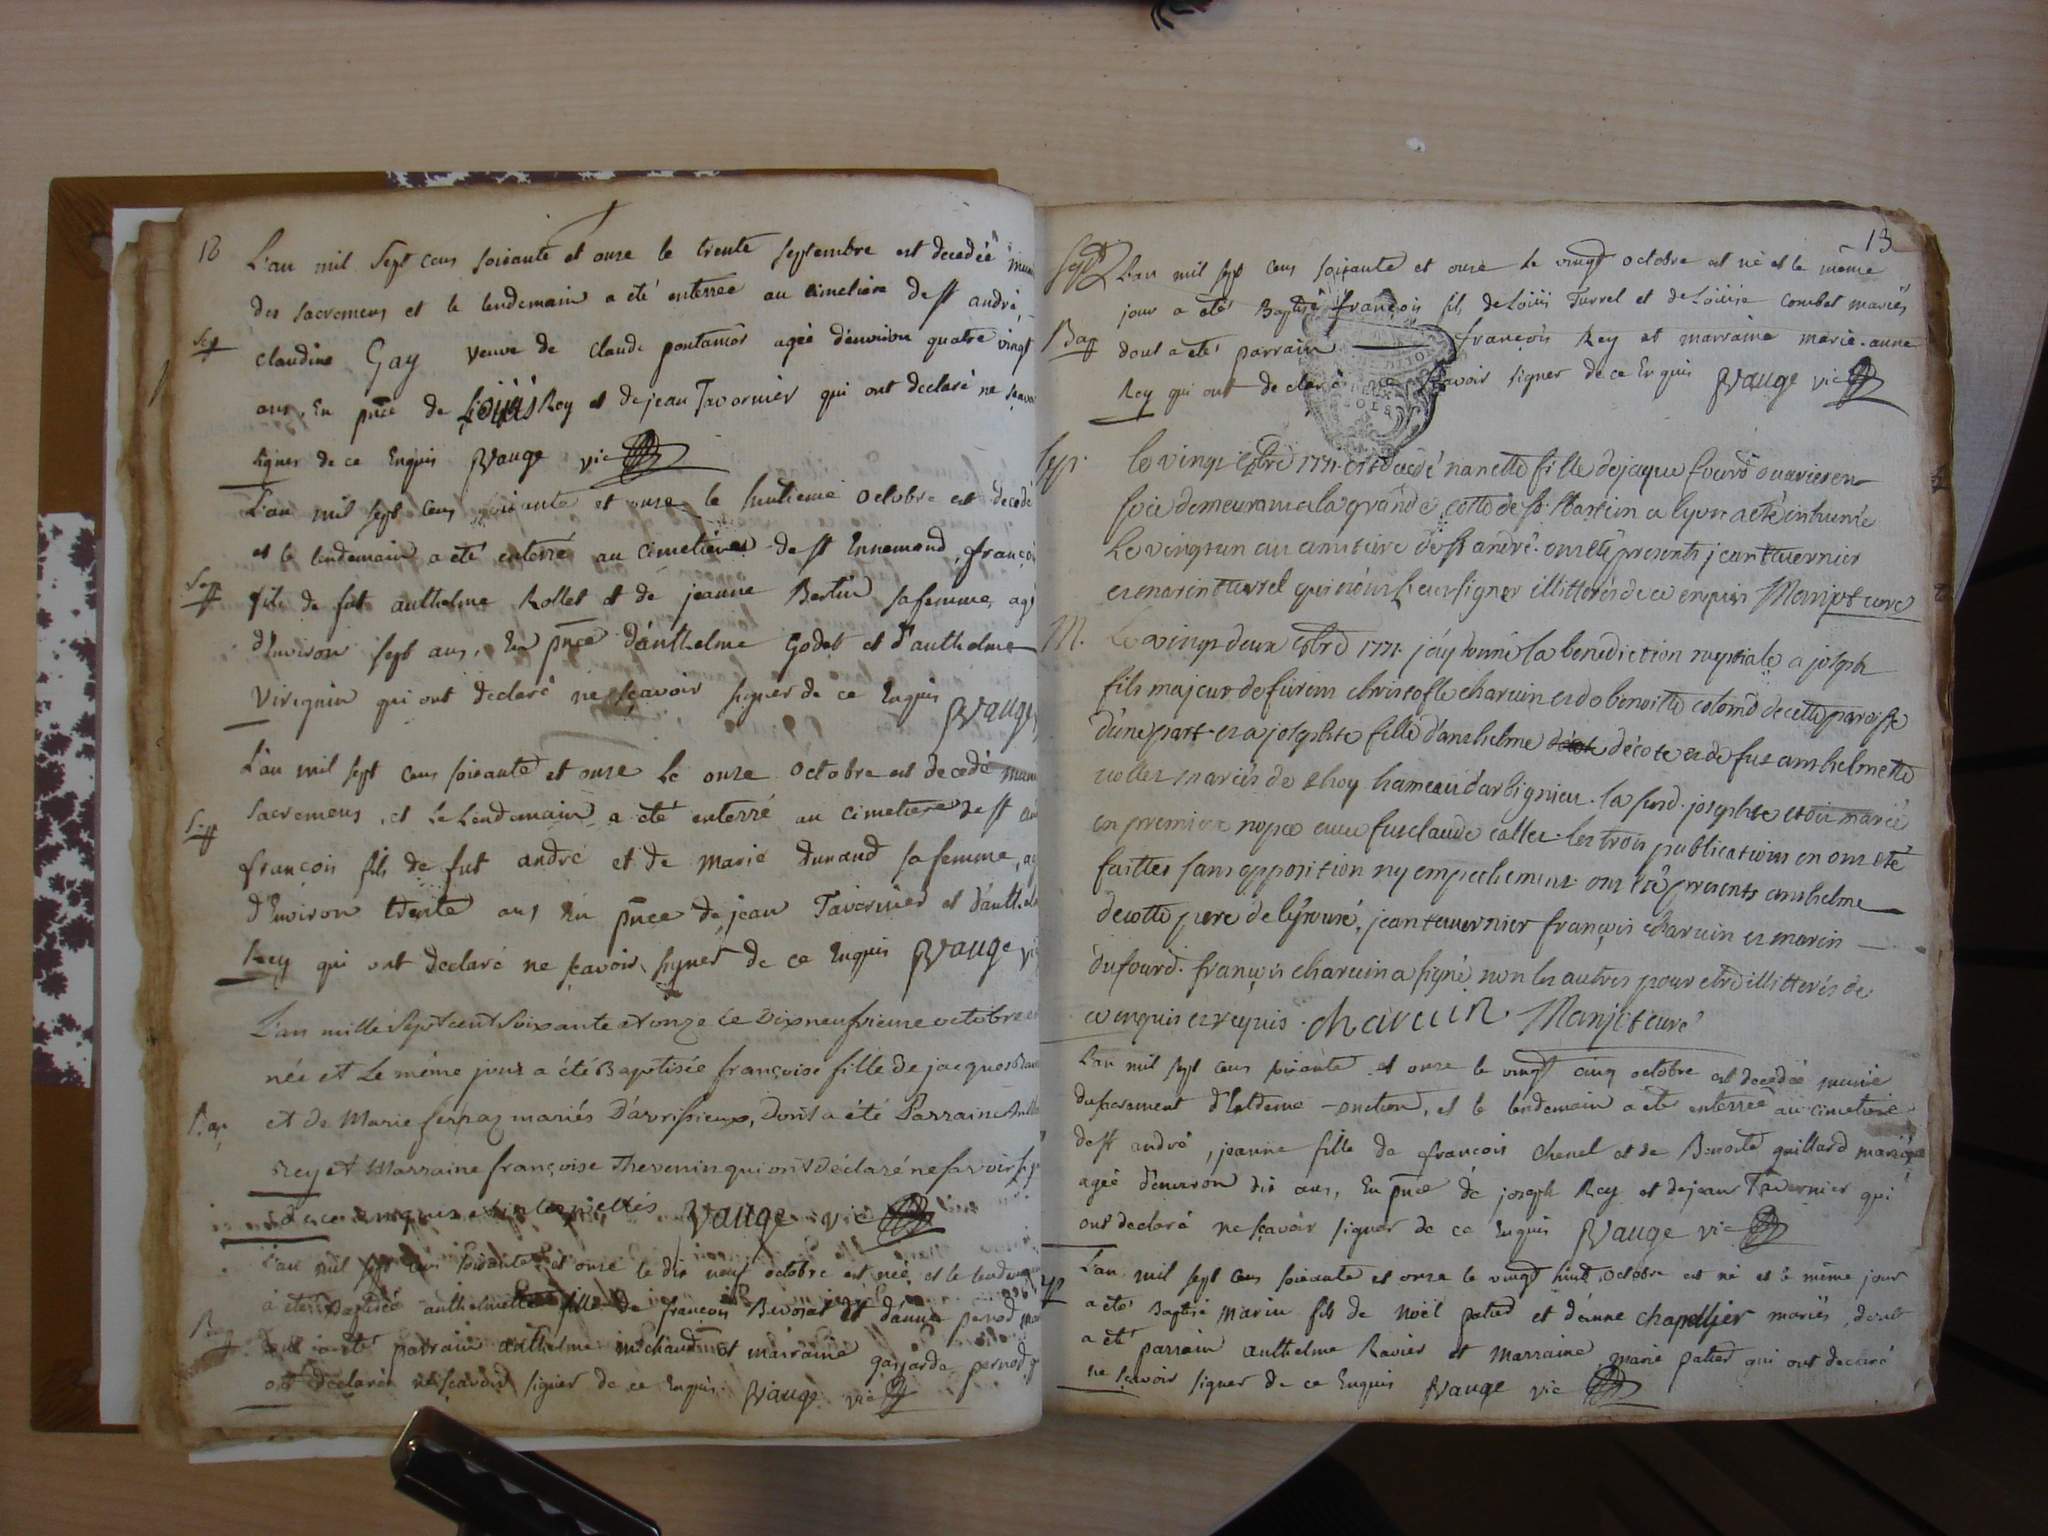 18
L'an mil Sept cens soixante et onze le trente septembre est decedée munie
des sacremens et le lendemain a eté enterrée au cimetiere de st andré,
Sep
claudine Gay veuve de claude pontancos agée d'environ quatre vingt
ans. En pnce de Loüis Rey et de jean Tavernier qui ont declaré ne sçavoir
signer de ce Enquis Vauge vic
L'an mil sept cens soixante et onze le huitieme octobre est decedé
et le lendemain a eté enterré au cimetiere de st Ennemond, françois
Sep
fils de fut anthelme Rollet et de jeanne Bertin sa femme, agé
d'Environ sept ans. En pnce d'anthelme Godet et d'anthelme
Virignin qui ont declaré ne sçavoir signer de ce Enquis Vauge
L'an mil sept cens soixante et onze Le onze octobre est decedé muni
sacremens, et Le Lendemain a eté enterré au cimetiere de st
Sep
françois fils de fut andré et de marie durand sa femme,
d'Environ trente ans En pnce de jean Tavernier et d'anthelme
Rey qui ont declaré ne sçavoir signer de ce Enquis Vauge vic
L'an mille Sept cent Soixante et onze Le Dixneufvieme octobre est
née et Le même jour a été Baptisée françoise fille de jacques
Bap
et de Marie serpaz mariés D'avrissieux, Dont a été Parrain
Rey et Marraine françoise Thevenin qui ont Déclaré ne savoir
de ce enquis et interpellés Vauge vic
L'an mil sept cens soixante et onze le dix neuf octobre est née et le lendemain
a eté Baptisée anthelmette fille de françois Bivozat et d'anne pernod
Bap
dont a eté parrain anthelme michaud et mairaine garjarde pernod
ont declaré ne sçavoir signer de ce Enquis. Vauge vic
13
L'an mil sept cens soixante et onze Le vingt octobre est né et le même
jour a eté Baptisé françois fils de Loüis Turrel et de Loüise combet mariés
Bap
dont a eté parrain françois Rey et marraine marie-anne
Rey qui ont declaré ne sçavoir signer de ce Enquis Vauge vic
Sep.
le vingt 8bre 1771. est decedé nanette fille de jaque fours ouvrier en
soie demeurant a la grande cotte de st. Martin a lyon a eté inhumée
Le vingt un au cimitiere de st andré. ont eté presents jean tavernier
et marin turrel qui n'ont sceu signer illitterés de ce enquis Manjot curé
M.
Le vingt deux 8bre 1771. j'ay donné la benediction nuptiale a joseph
fils majeur de furent christofle charvin et de benoitte colomb de cette paroisse
d'une part et a josephte fille d'anthelme décote et de fut anthelmette
rollet mariés de thoy hameau d'arbignieu. la susd. josephte etoit mariée
en premiere nopce avec fut claude callet. les trois publications en ont eté
faittes sans opposition ny empechement ont eté presents anthelme
decotte pere de l'epouse, jean tavernier françois charvin et marin
dufourd. françois charvin a signé non les autres pour etre illitterés de
ce enquis et requis. charvin. Manjot curé
L'an mil sept cens soixante et onze le vingt cinq octobre est decedée munie
du sacrement d'Extreme-onction, et le lendemain a eté enterrée au cimetiere
de st andré, jeanne fille de françois chenel et de Benoite guillard mariés
agée d'environ dix ans, En pnce de joseph Rey et de jean Tavernier qui
ont declaré ne sçavoir signer de ce Enquis Vauge vic
L'an mil sept cens soixante et onze le vingt huit octobre est né et le même jour
a eté Baptisé Marin fils de noël patud et d'anne chapellier mariés, dont
a eté parrain anthelme Ravier et Marraine marie patud qui ont declaré
ne sçavoir signer de ce Enquis Vauge vic